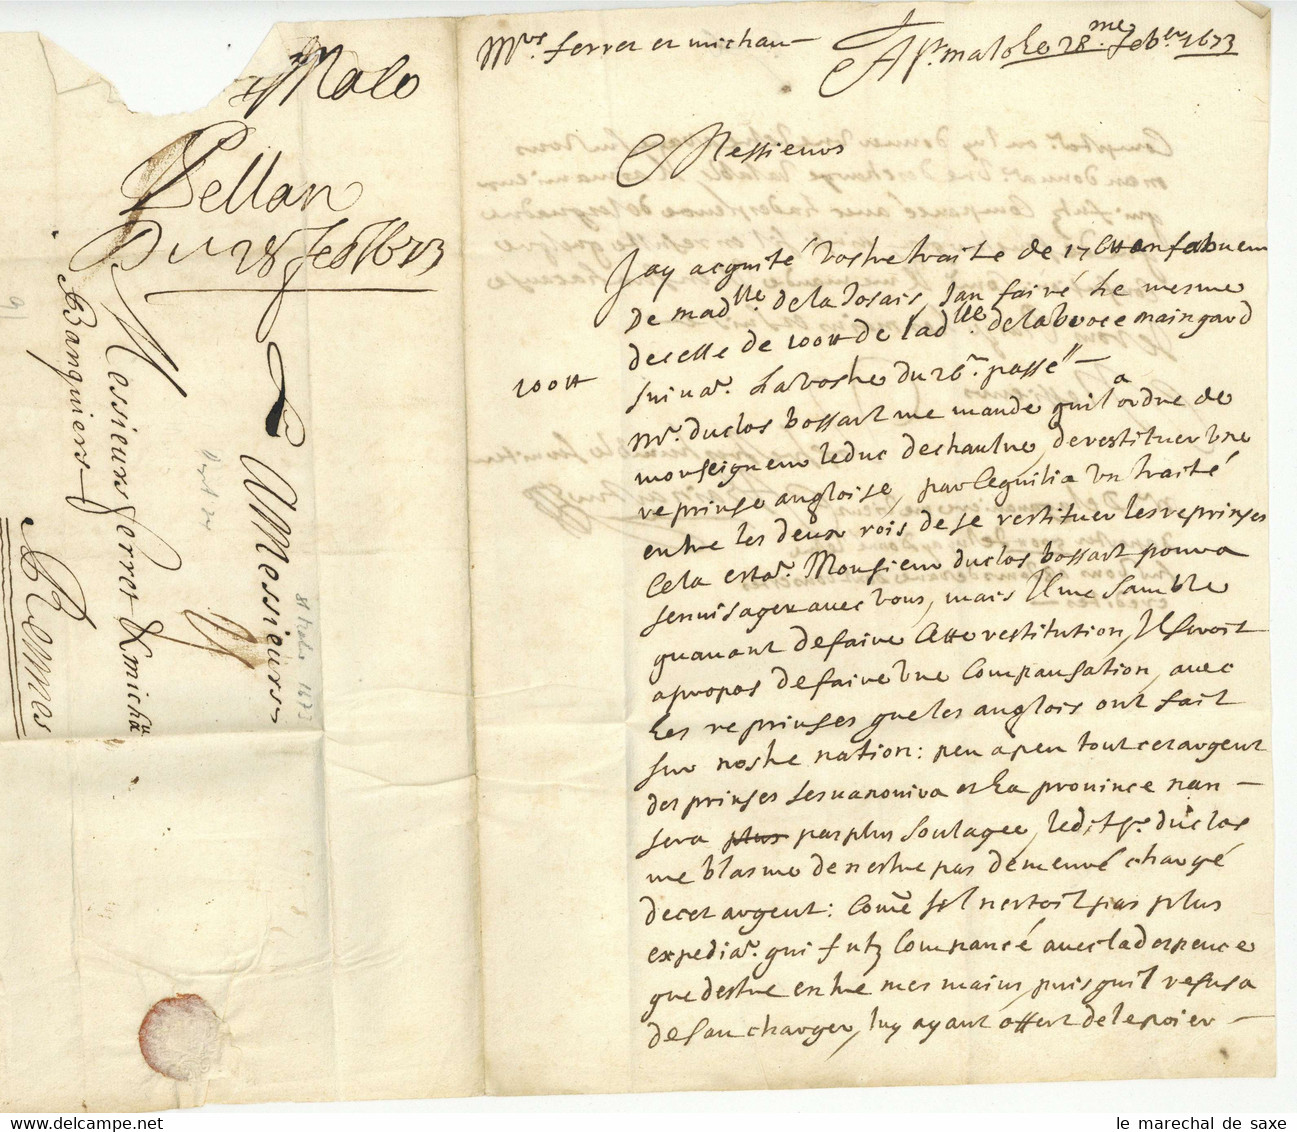 Malo
Pellan
Du 28 feb 1673
A Messieurs
Messieurs ferret & michau
Banquiers
A Rennes
St Malo 1673
Mrs. ferret et michau
A St. malo le 28.me feber 1673
Messieurs
Jay acquité vostre traitte de 176tt en fabueur
De madlle. De la dosais, Jan fairé le mesme
100tt
de celle de 100tt de ladlle de la broce maingard
suivat. la vostre du 26e. passé
Mr. duclos bossart me mande quil a ordre de
monseigneur le duc de chaulne, de restituer Une
reprinse angloise, par ce quil i a un traité
entre les deux rois de se restituer les reprinses
Cela estat. Monsieur duclos bossart poura
senuisager avec Vous, mais Il me samble
quauant de faire Cette restitution, Il seroit
apropos de faire Une Compansation, avec
Les reprinses que les anglois ont fait
sur nostre nation: peu a peu tout cet argent
des prinses sesuanouira et La prouince nan
sera plus pas plus soulagee, ledit sr. duclos
me blasme de nestre pas demeuré chargé
de cet argent: Come sil nestoit pas plus
expediat. qui futz Compancé avec la despence
que destre entre mes mains, puis quil refusa
de san charger, luy ayant offert de le poier
le marechal de saxe